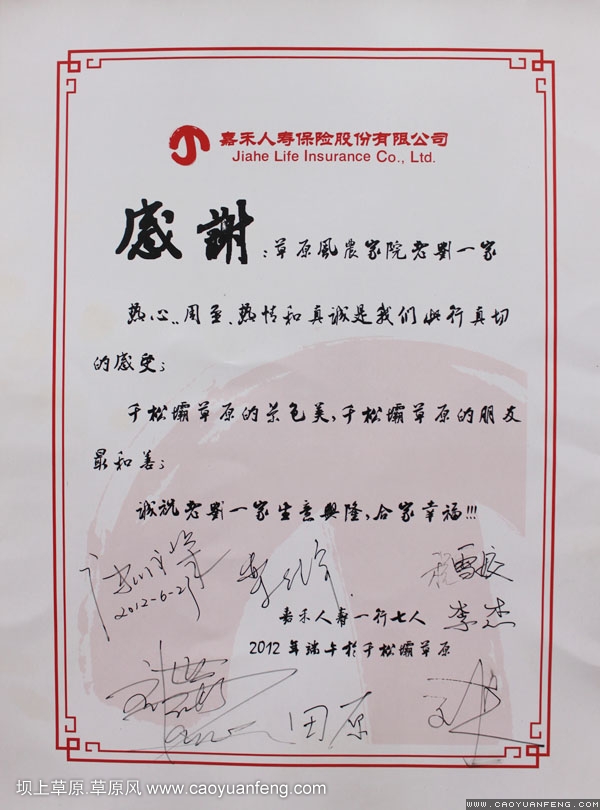 嘉禾人寿保险股份有限公司
Jiahe Life Insurance Co., Ltd.
感謝:草原風農家院老劉一家
热心、周至、热情和真诚是我们此行真切
的感受;
千松壩草原的景色美,千松壩草原的朋友
最和善;
诚祝老劉一家生意興隆,合家幸福!!!
2012-6-21
雪皎
嘉禾人寿一行七人 李杰
2012年端午於千松壩草原
田原
坝上草原.草原风 www.caoyuanfeng.com
WWW.CAOYUANFENG.COM